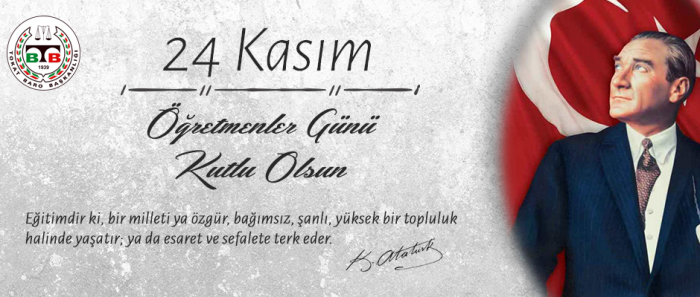 24 Kasım
Öğretmenler Günü
Kutlu Olsun
Eğitimdir ki, bir milleti ya özgür, bağımsız, şanlı, yüksek bir topluluk
halinde yaşatır; ya da esaret ve sefalete terk eder.
K. Atatürk
TBB
1939
TOKAT BARO BAŞKANLIĞI